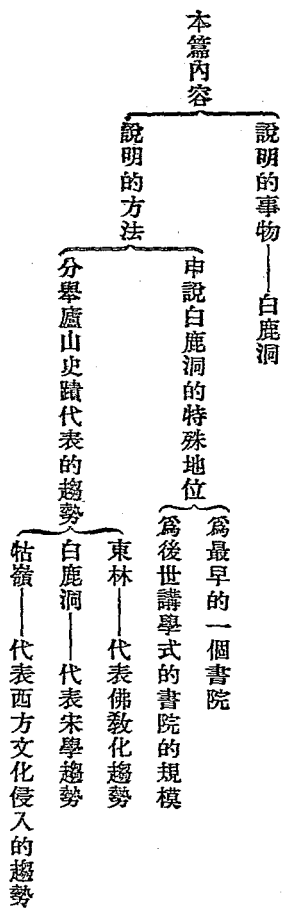 本篇內容
說明的事物——白鹿洞
說明的方法
申說白鹿洞的特殊地位
為最早的一個書院
為後世講學式的書院的規模
分舉廬山史蹟代表的趨勢
東林——代表佛敎化趨勢
白鹿洞——代表宋學趨勢
牯嶺——代表西方文化侵入的趨勢